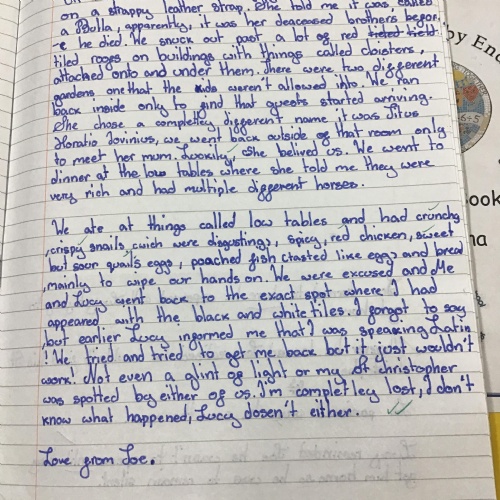 on a strappy leather strap. She told me it was called
a Bulla, apparently, it was her deaceased brothers befor
-e he died. We snuck out past a lot of red tieled tield
tiled roofs on buildings with things called cloisters,
attached onto and under them. There were two different
gardens one that the kids weren't allowed into. We ran
back inside only to find that guests started arriving.
She chose a completley different name it was Titus
Horatio Jovinius, we went back outside of that room only
to meet her mum. Luckily, She belived us. We went to
dinner at the low tables where she told me they were
very rich and had multiple different horses.
We ate at things called low tables and had crunchy
,crispy snails, (wich were disgusting), spicy, red chicken, sweet
but sour quail's eggs, poached fish (tasted like egg) and bread
,mainly to wipe our hands on. We were excused and Me
and Lucy went back to the exact spot where I had
appeared with the black and white tiles. I forgot to say
,but earlier Lucy informed me that I was speaking Latin
! We tried and tried to get me back but it just wouldn't
work! Not even a glint of light or my st christopher
was spotted by either of us. I'm completley lost, I don't
know what happened, Lucy dosen't either.
Love from Joe.
by En
6+5
ook
na